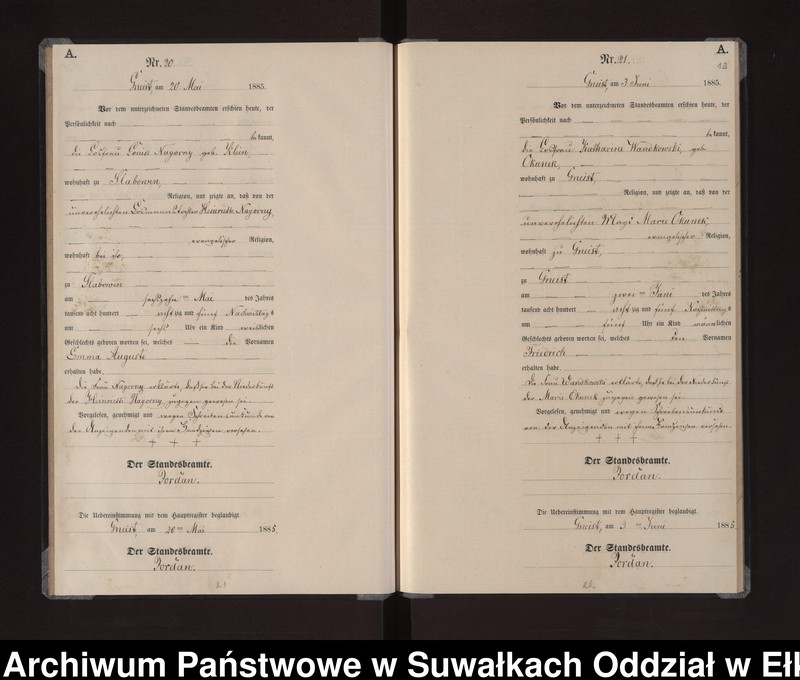 A.
Nr. 20.
Gneist, am 20. Mai 1885.
Vor dem unterzeichneten Standesbeamten erschien heute, der
Persönlichkeit nach
bekannt,
die Losfrau Louise Nagorny geb. Klein,
wohnhaft zu Slabowen,
Religion, und zeigte an, daß von der
unverehelichten Heinriette Nagorny,
evangelischer Religion,
wohnhaft bei ihr,
zu Slabowen
am sechszehn ten Mai des Jahres
tausend acht hundert achtzig und fünf Nachmittags
um sechs Uhr ein Kind weiblichen
Geschlechts geboren worden sei, welches die Vornamen
Emma Auguste
erhalten habe.
Die Frau Nagorny erklärte, daß sie bei der Niederkunft
der Heinriette Nagorny zugegen gewesen sei.
Vorgelesen, genehmigt und wegen Schreibensunkunde von
der Anzeigenden mit ihren Handzeichen versehen.
+ + +
Der Standesbeamte.
Jordan.
Die Uebereinstimmung mit dem Hauptregister beglaubigt.
Gneist, am 20 ten Mai 1885.
Der Standesbeamte.
Jordan.
21
A.
Nr. 21.
Gneist, am 3. Juni 1885.
Vor dem unterzeichneten Standesbeamten erschien heute, der
Persönlichkeit nach
bekannt,
die Losfrau Katharine Wandkowski, geb.
Okunek,
wohnhaft zu Gneist,
Religion, und zeigte an, daß von der
unverehelichten Magd Marie Okunek,
evangelischer Religion,
wohnhaft zu Gneist,
zu Gneist
am zwei ten Juni des Jahres
tausend acht hundert achtzig und fünf Nachmittags
um fünf Uhr ein Kind männlichen
Geschlechts geboren worden sei, welches den Vornamen
Friedrich
erhalten habe.
Die Frau Wandkowski erklärte, daß sie bei der Niederkunft
der Marie Okunek zugegen gewesen sei.
Vorgelesen, genehmigt und wegen Schreibensunkunde
von der Anzeigenden mit Handzeichen versehen.
+ + +
Der Standesbeamte.
Jordan.
Die Uebereinstimmung mit dem Hauptregister beglaubigt.
Gneist, am 3 ten Juni 1885.
Der Standesbeamte.
Jordan.
22
Archiwum Państwowe w Suwałkach Oddział w Ełk